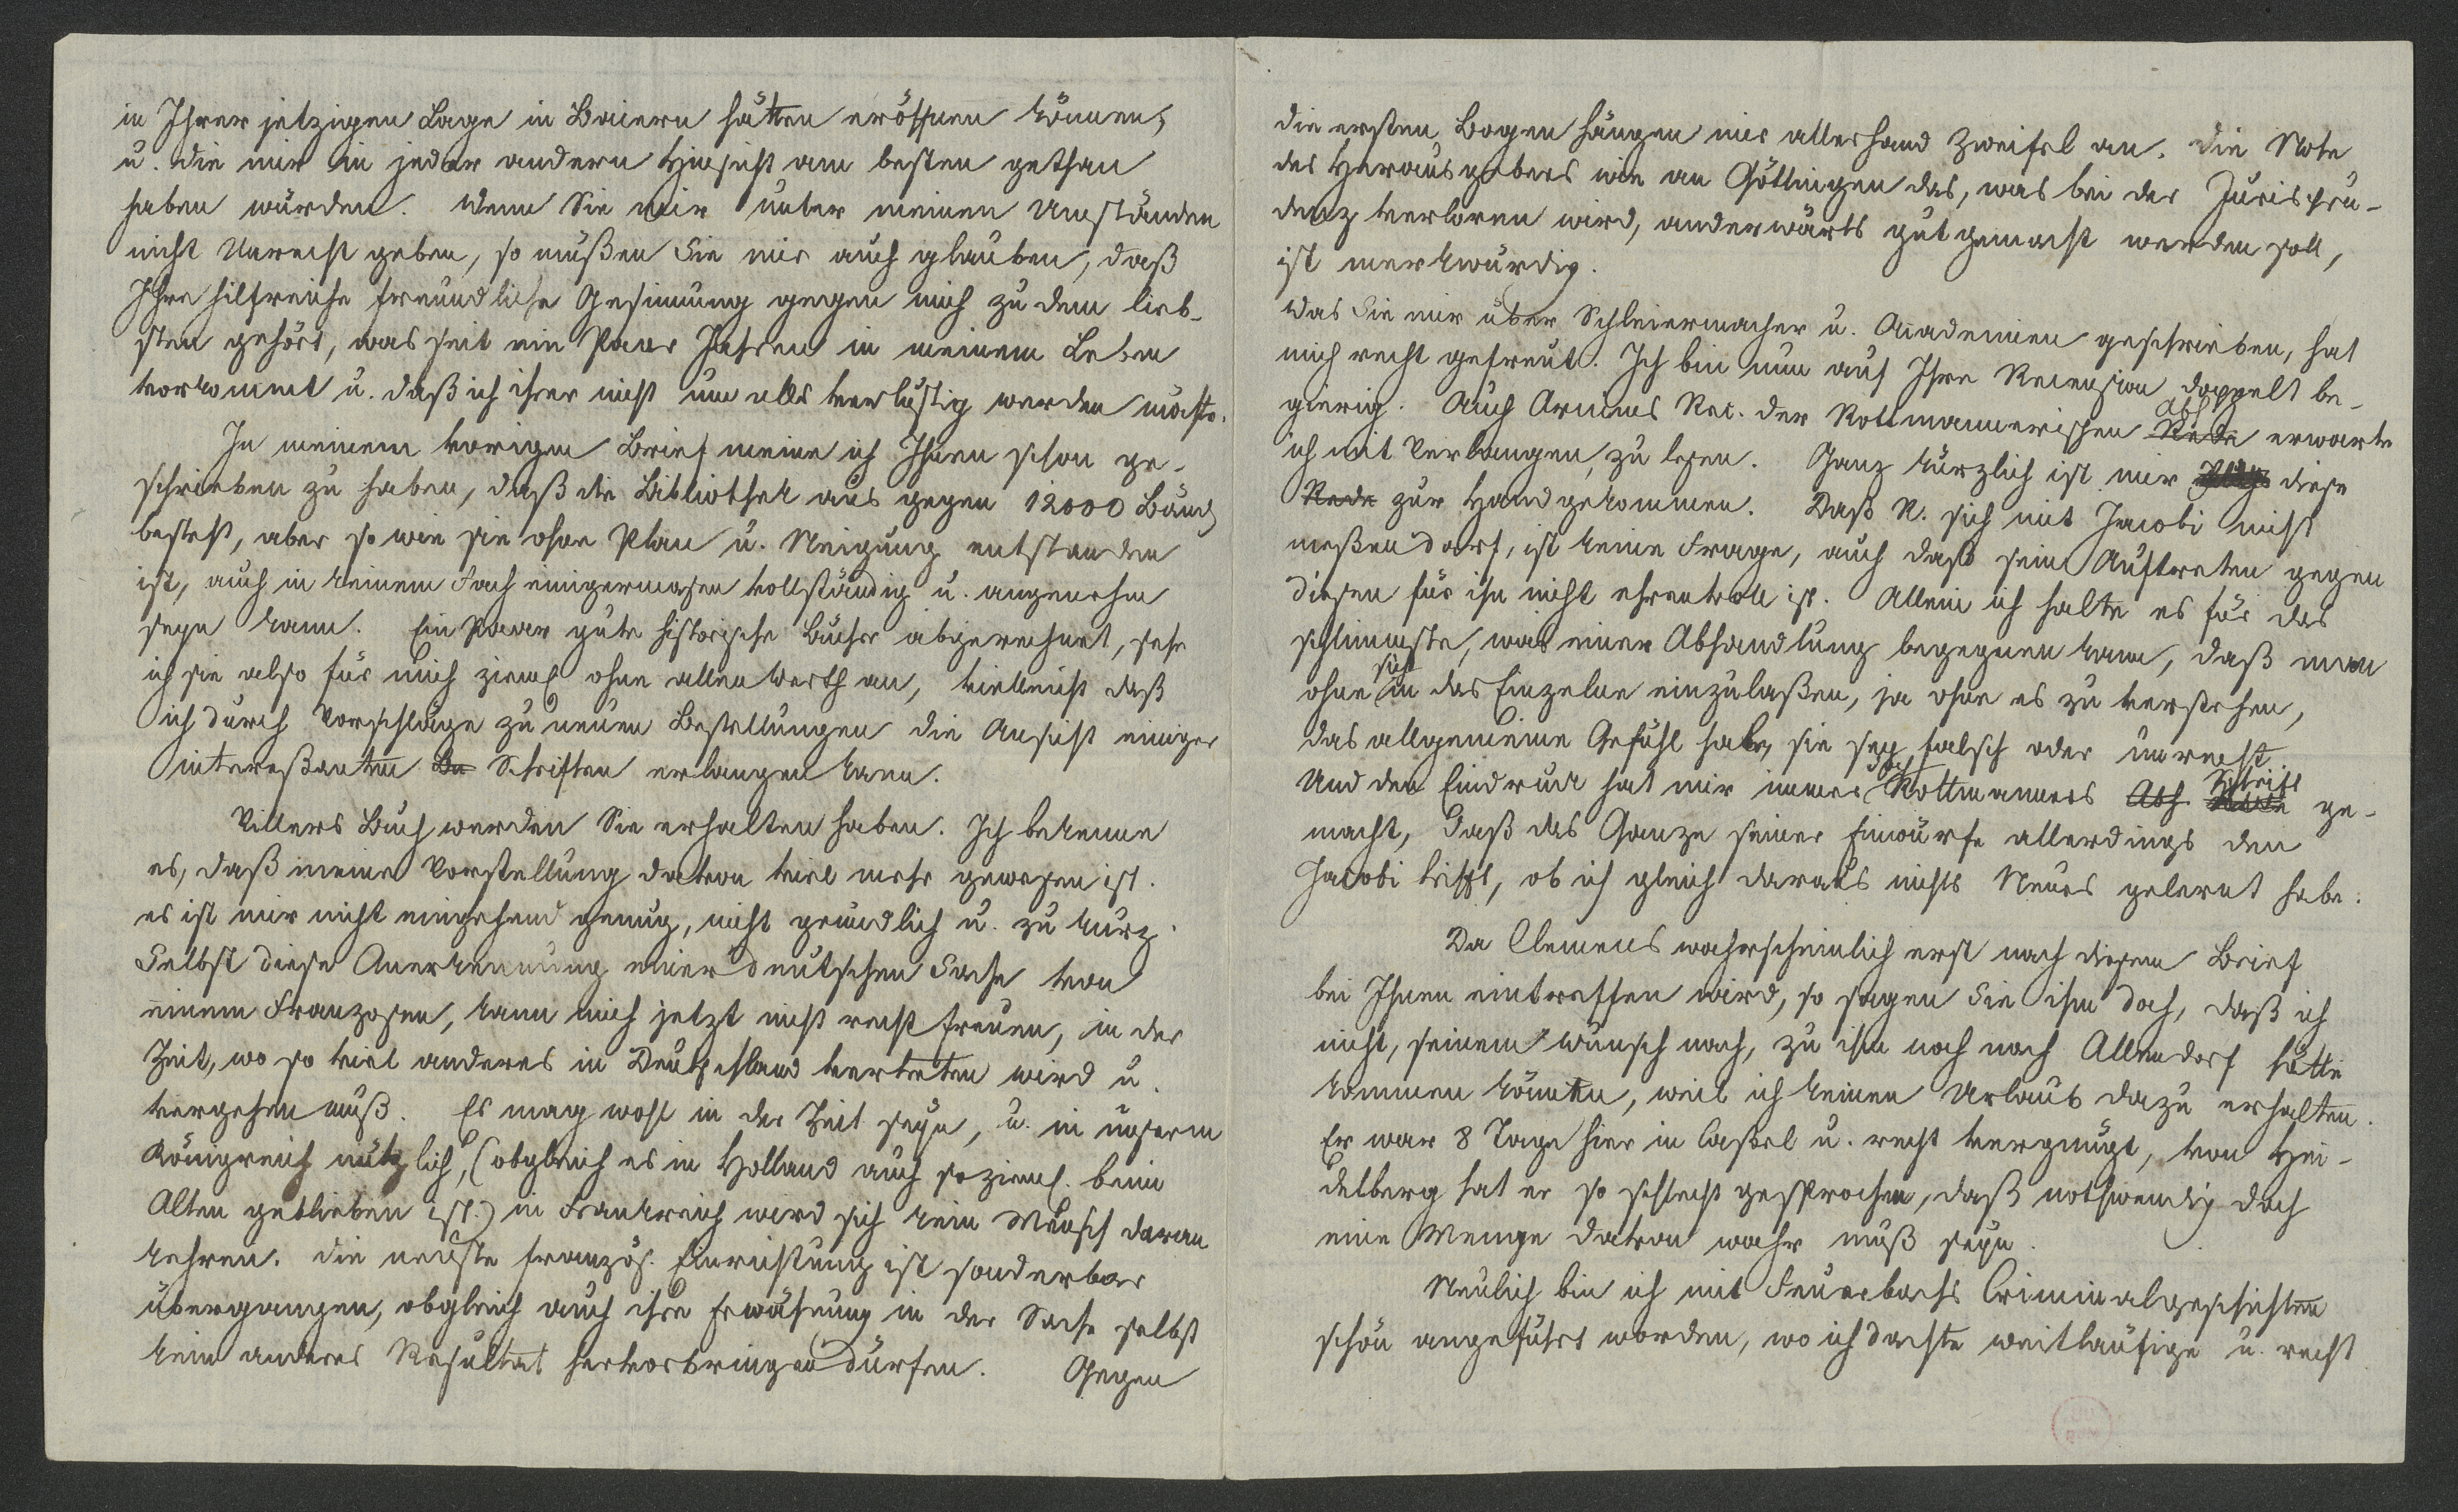 in Ihrer jetzigen Lage in Baiern hätten eröffnen können,
u. die mir in jeder andern Hinsicht am besten gethan
haben würden. Wenn Sie mir unter meinen Umständen
nicht Unrecht geben, so müßen Sie mir auch glauben, daß
Ihre hilfreiche freundliche Gesinnung gegen mich zu dem lieb-
sten gehört, was seit ein Paar Jahren in meinem Leben
vorkommt u. daß ich ihrer nicht um alls verlustig werden möchte.
In meinem vorigen Brief meine ich Ihnen schon ge-
schrieben zu haben, daß die Bibliothek aus gegen 12000 Bänd
besteht, aber so wie sie ohne Plan u. Neigung entstanden
ist, auch in keinem Fach einigermasen vollständig u. angenehm
seyn kann. Ein Paar gute historische Bücher abgerechnet, sehe
ich sie also für mich ziemł ohne allen Werth an, vielleicht daß
ich durch Vorschläge zu neuen Bestellungen die Ansicht einiger
intereßanten Bü Schriften erlangen kann.
Villers Buch werden Sie erhalten haben. Ich bekenne
es, daß meine Vorstellung davon viel mehr gewesen ist.
es ist mir nicht eingehend genug, nicht gründlich u. zu kurz.
Selbst diese Anerkennung einer deutschen Sache von
einem Franzosen, kann mich jetzt nicht recht freuen, in der
Zeit, wo so viel anderes in Deutschland vertreten wird u.
vergehen muß. Es mag wohl in der Zeit seyn, u. in unserm
Königreich nützlich, (obgleich es in Holland auch so ziemł. beim
Alten geblieben ist.) in Frankreich wird sich kein Mensch daran
kehren. Die neuste französ. Einrichtung ist sonderbar
übergangen, obgleich auch ihre Erwähnung in der Sache selbst
kein anderes Resultat hervorbringen dürfen. Gegen
die ersten Bogen hängen mir allerhand Zweifel an. die Note
des Herausgebers wie an Göttingen das, was bei der Jurispru-
denz verloren wird, anderwärts gut gemacht werden soll,
ist merkwürdig.
Was Sie mir über Schleiermacher u. Academien geschrieben, hat
mich recht gefreut. Ich bin nun auf Ihre Recension doppelt be-
gierig. Auch Arnims Rec. der Rottmannerischen Rede Abh erwarte
ich mit Verlangen zu lesen. Ganz kürzlich ist mir diese
Rede zur Hand gekommen. Daß R. sich mit Jacobi nicht
meßen darf, ist keine Frage, auch daß sein Auftreten gegen
diesen für ihn nicht ehrenvoll ist. Allein ich halte es für das
schlimmste, was einer Abhandlung begegnen kann, daß man
ohne sich in das Einzelne einzulaßen, ja ohne es zu verstehen,
das allgemeine Gefühl habe, sie sey falsch oder unrecht.
Und den Eindruck hat mir immer Rottmanners Abh. Rede Schrift ge-
macht, daß das Ganze seiner Einwürfe allerdings den
Jacobi trifft, ob ich gleich daraus nichts Neues gelernt habe.
Da Clemens wahrscheinlich erst nach diesem Brief
bei Ihnen eintreffen wird, so sagen Sie ihm doch, daß ich
nicht, seinem Wunsch nach, zu ihm noch nach Allendorf hätte
kommen können, weil ich keinen Urlaub dazu erhalten.
Er war 8 Tage hier in Caßel u. recht vergnügt, von Hei-
delberg hat er so schlecht gesprochen, daß nothwendig doch
eine Menge davon wahr muß seyn.
Neulich bin ich mit Feuerbachs Criminalgeschichten
schön angeführt worden, wo ich dachte weitläufige u. recht